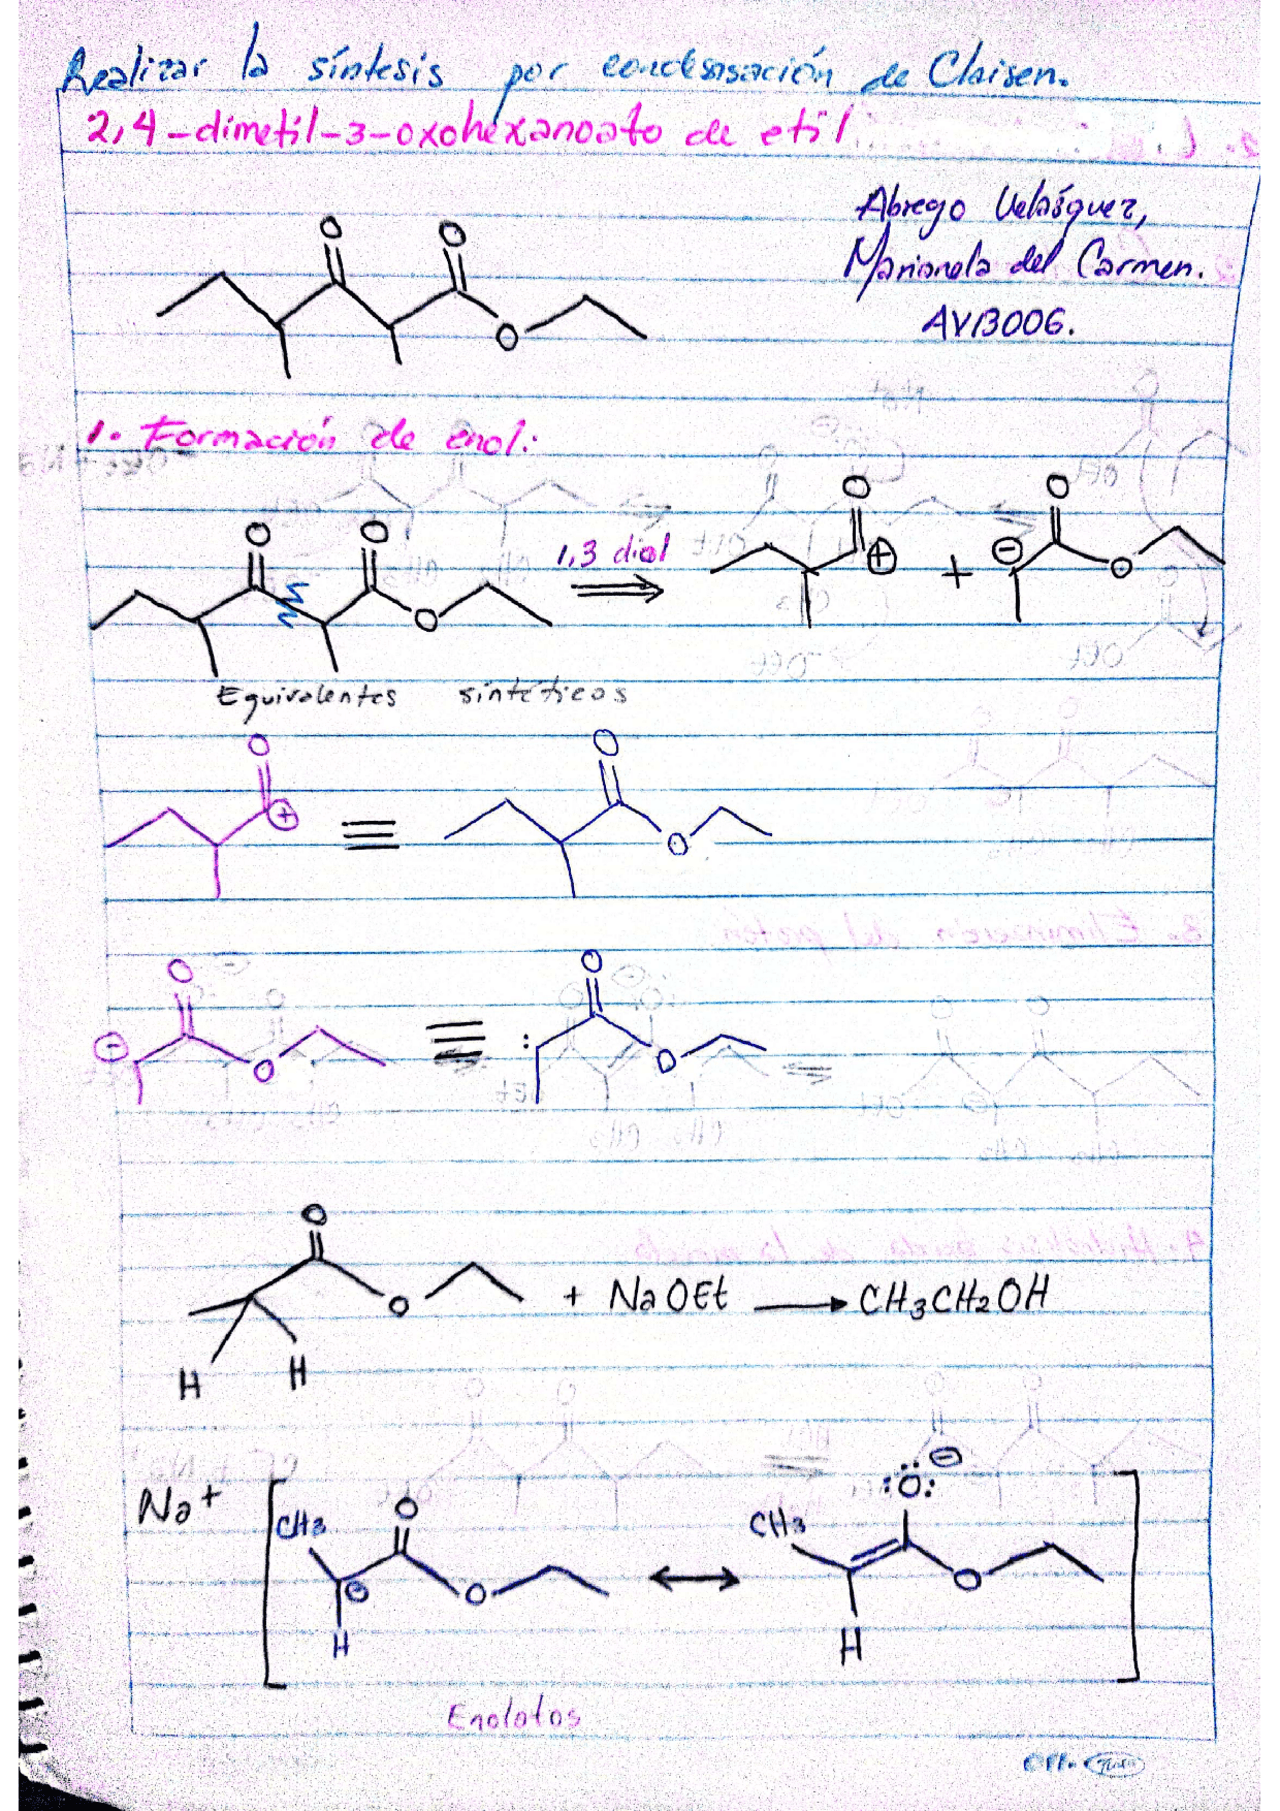 Realizar la síntesis por condensación de Claisen.
2,4-dimetil-3-oxohexanoato de etil
Abrego Velásquez,
Marianela del Carmen.
AV13006.
O O
O
1. Formación de enol:
O O O O
1,3 diol
⊕ + ⊖ O
O
Equivalentes sintéticos
O O
⊕ ≡ O
O O
⊖ O ≡ : O
O
O + NaOEt → CH3CH2OH
H H
Na+
CH3 O ⊖ O ↔ CH3 :Ö: ⊖ O
H H
Enolatos